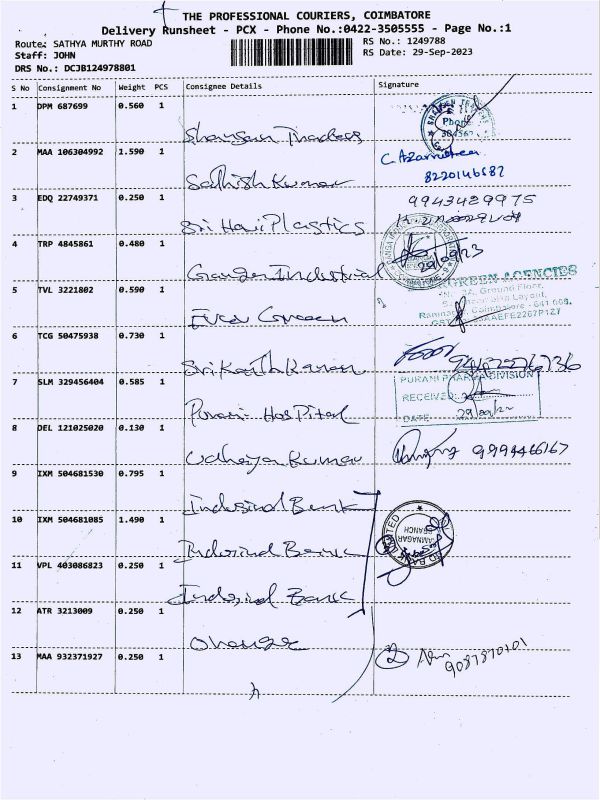 THE PROFESSIONAL COURIERS, COIMBATORE
Delivery Runsheet - PCX - Phone No.:0422-3505555 - Page No.:1
Route: SATHYA MURTHY ROAD
RS No.: 1249788
Staff: JOHN
RS Date: 29-Sep-2023
DRS No.: DCJB124978801
S No Consignment No Weight PCS Consignee Details Signature
1 DPM 687699 0.560 1
Phone
2 MAA 106304992 1.590 1
8220146682
Sathish Kumar
3 EDQ 22749371 0.250 1 9943429975
Sri Hari Plastics
4 TRP 4845861 0.480 1
Ganga Industrial 29/09/23
5 TVL 3221802 0.590 1 GREEN AGENCIES
Ground Floor,
Ever Green
6 TCG 50475938 0.730 1
Srikanth Kannan
7 SLM 329456404 0.585 1 PURANI PHARMA DIVISION
RECEIVED
Purani Hospital DATE
8 DEL 121025020 0.130 1
Udhaya Kumar 9994466167
9 IXM 504681530 0.795 1
Indusind Bank
10 IXM 504681085 1.490 1
Indusind Bank
11 VPL 403086823 0.250 1
Indusind Bank
12 ATR 3213009 0.250 1
13 MAA 932371927 0.250 1 2